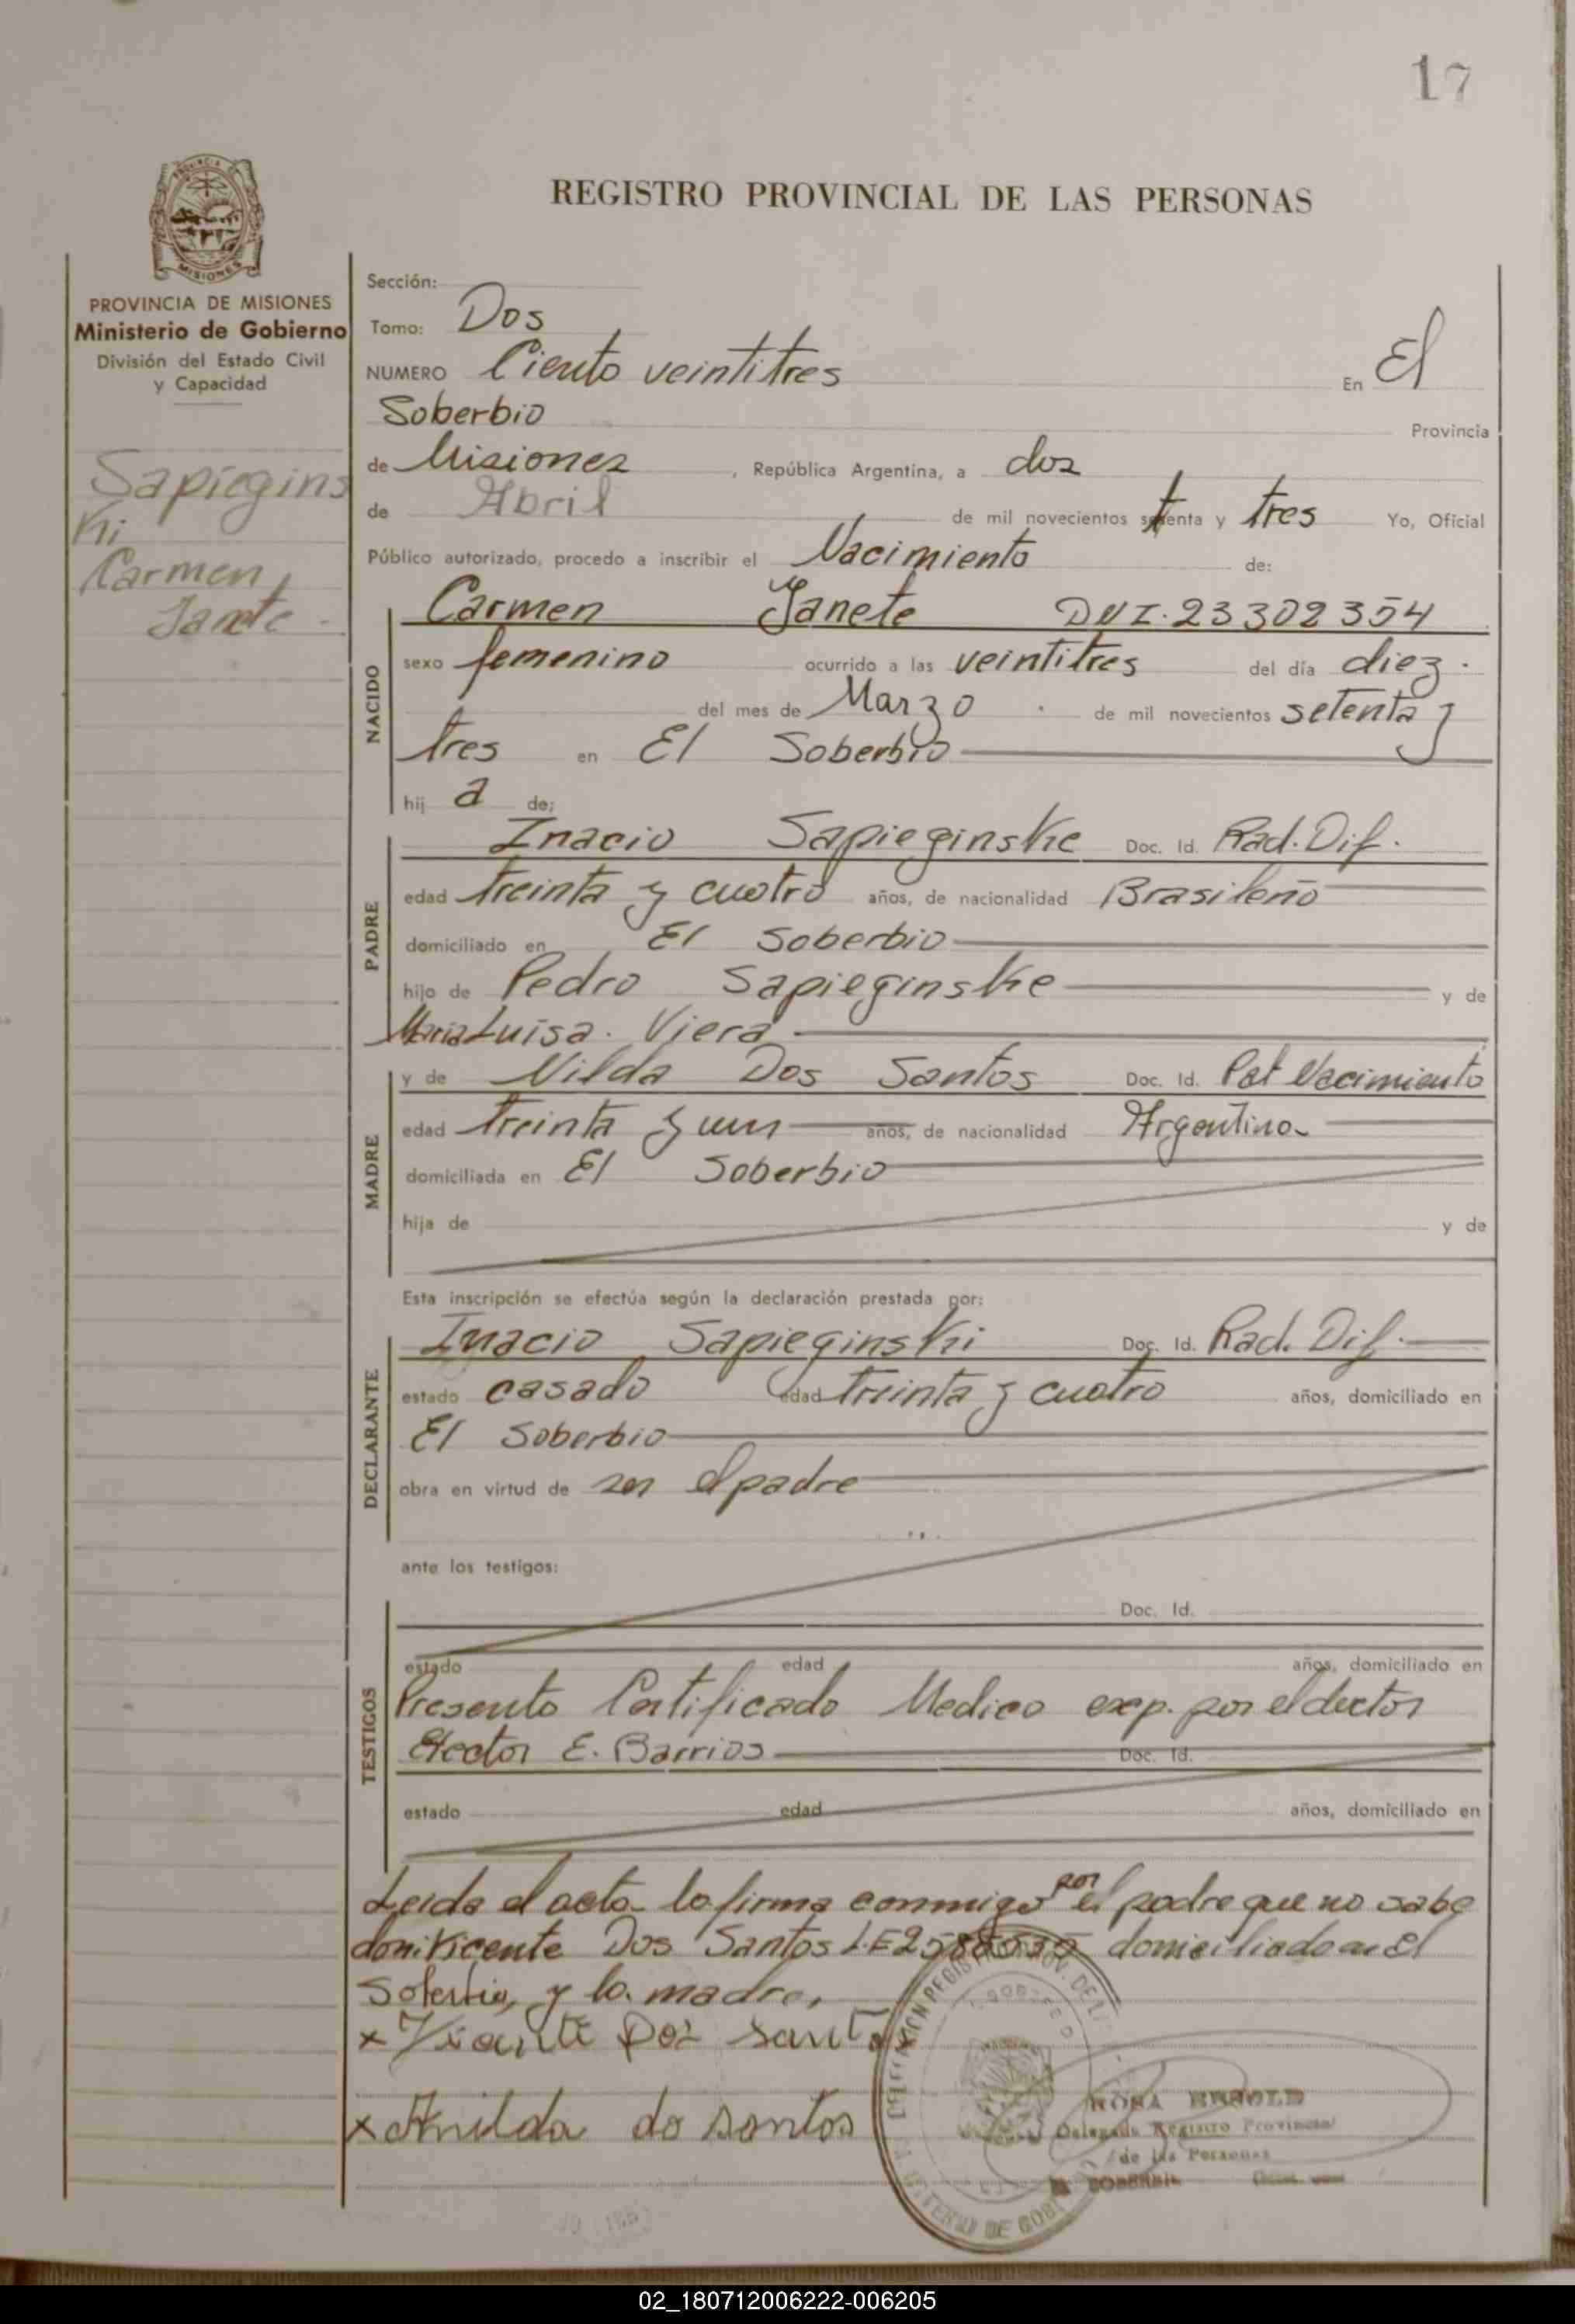 17
PROVINCIA DE MISIONES
Ministerio de Gobierno
División del Estado Civil
y Capacidad
Sapiegins
Ki
Carmen
Janete
REGISTRO PROVINCIAL DE LAS PERSONAS
Sección:
Tomo: Dos
NUMERO Ciento veintitres En El
Soberbio Provincia
de Misiones, República Argentina, a dos
de Abril de mil novecientos setenta y tres Yo, Oficial
Público autorizado, procedo a inscribir el Nacimiento de:
NACIDO
Carmen Janete DNI. 23302354
sexo femenino ocurrido a las veintitres del día diez
del mes de Marzo de mil novecientos setenta y
tres en El Soberbio
hij a de:
PADRE
Inacio Sapieginske Doc. Id. Rad. Dif.
edad treinta y cuatro años, de nacionalidad Brasileño
domiciliado en El Soberbio
hijo de Pedro Sapieginske y de
Maria Luisa. Viera
MADRE
y de Nilda Dos Santos Doc. Id. Nacimiento
edad treinta y un años, de nacionalidad Argentina
domiciliada en El Soberbio
hija de y de
Esta inscripción se efectúa según la declaración prestada por:
DECLARANTE
Inacio Sapieginski Doc. Id. Rad. Dif.
estado casado edad treinta y cuatro años, domiciliado en
El Soberbio
obra en virtud de ser el padre
ante los testigos:
TESTIGOS
Doc. Id.
estado edad años, domiciliado en
Presento Certificado Medico exp. por el doctor
Hector E. Barrios Doc. Id.
estado edad años, domiciliado en
Leida el acta la firma conmigo por el padre que no sabe
don Vicente Dos Santos L.E domiciliado en El
Soberbio, y la madre,
x Vicente Dos Santos
x Anilda do santos
ROSA
Delegada Registro Provincial
de las Personas
EL SOBERBIO
02_180712006222-006205